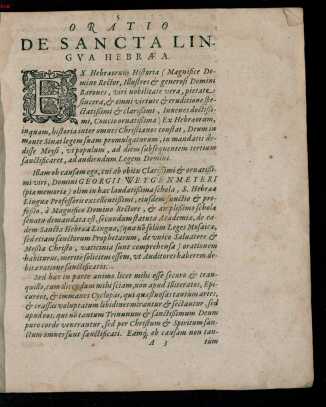 ORATIO
DE SANCTA LIN-
GVA HEBRÆA.
EX Hebræorum Historia (Magnifice Do-
mine Rector, Illustres & generosi Domini
Barones, viri nobilitate vera, pietate
sincera, & omni virtute & eruditione spe-
ctatissimi & clarissimi, Iuvenes doctissi-
mi, Concio ornatissima) Ex Hebræorum,
inquam, historia inter omnes Christianos constat, Deum in
monte Sinai legem suam promulgaturum, in mandatis de-
disse Moysi, vt populum, ad diem subsequentem tertium
sanctificaret, ad audiendum Legem Domini.
Illam ob causam ego, cui ab obitu Clarissimi & ornatissi-
mi viri, Domini GEORGII WEYGENMEIERI
(pia memoria) olim in hac laudatissima schola, S. Hebrææ
Linguæ Professoris excellentissimi, eiusdem functio & pro-
fessio, à Magnifico Domino Rectore, & amplissimo schola
senatu demandata est, secundum statuta Academiæ, de ea-
dem Sancta Hebræa Lingua, (qua nō solùm Leges Mosaicæ,
sed etiam sanctorum Prophetarum, de vnico Salvatore &
Messia Christo, vaticinia sunt comprehensa) orationem
habiturus, meritò solicitus essem, vt Auditores haberem de-
bita ratione sanctificatos.
Sed hac in parte animo licet mihi esse securo & tran-
quillo, cum dicendum mihi sciam, non apud Illiteratos, Epi-
cureos, & immanes Cyclopas, qui questuosas tantùm artes,
& crassas voluptatum libidines mirantur & sectantur, sed
apud eos, qui nō tantum Trinunum & sanctissimum Deum
puro corde venerantur, sed per Christum & Spiritum san-
ctum omnes sunt sanctificati. Eamq́; ob causam non tan-
A 3 tùm